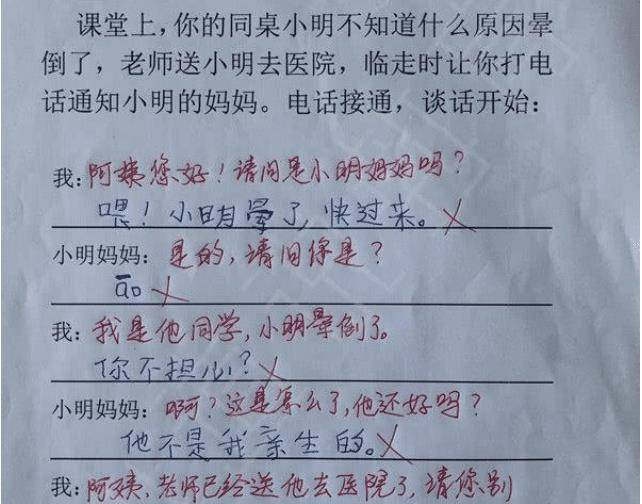 课堂上，你的同桌小明不知道什么原因晕
倒了，老师送小明去医院，临走时让你打电
话通知小明的妈妈。电话接通，谈话开始：
我：阿姨您好！请问是小明妈妈吗？
喂！小明晕了，快过来。
小明妈妈：是的，请问你是？
我：我是他同学，小明晕倒了。
你不担心？
小明妈妈：啊？这是怎么了，他还好吗？
他不是我亲生的。
我：阿姨，老师已经送他去医院了，请您别